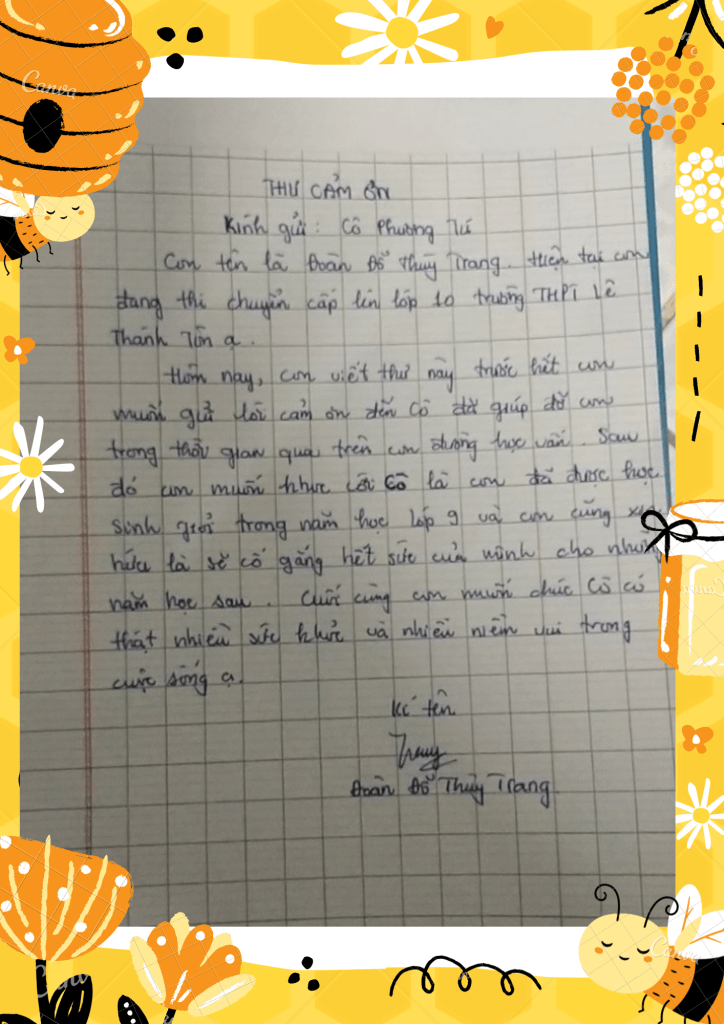 THƯ CẢM ƠN
Kính gửi : Cô Phương Tú
Con tên là Đoàn Đỗ Thùy Trang. Hiện tại con
đang thi chuyển cấp lên lớp 10 trường THPT Lê
Thánh Tôn ạ.
Hôm nay, con viết thư này trước hết con
muốn gửi lời cảm ơn đến Cô đã giúp đỡ con
trong thời gian qua trên con đường học vấn. Sau
đó con muốn khoe với Cô là con đã được học
sinh giỏi trong năm học lớp 9 và con cũng xin
hứa là sẽ cố gắng hết sức của mình cho những
năm học sau. Cuối cùng con muốn chúc Cô có
thật nhiều sức khỏe và nhiều niềm vui trong
cuộc sống ạ.
Kí tên
Trang
Đoàn Đỗ Thùy Trang.
Canva